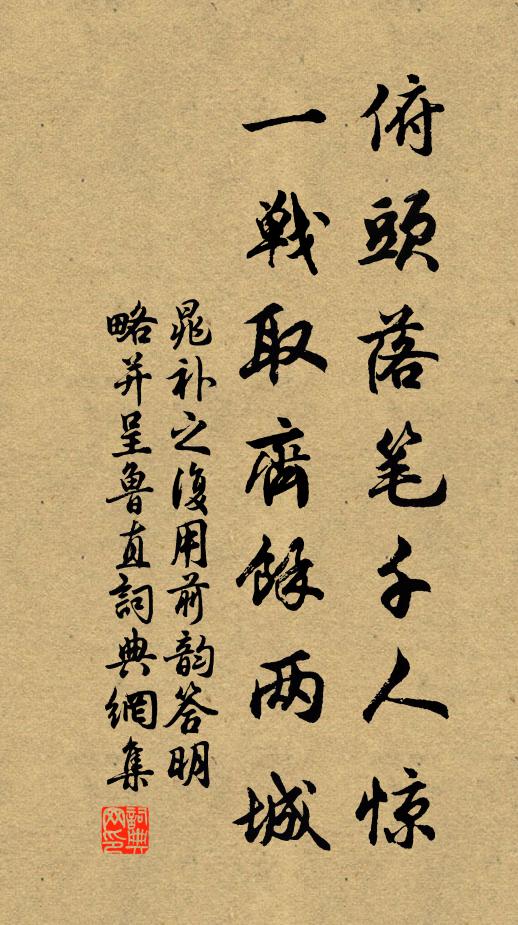 俯頭落笔千人惊
一戦取齊餘两城
晁补之復用前韵答明
略并呈魯直詞典網集
詞典
网印